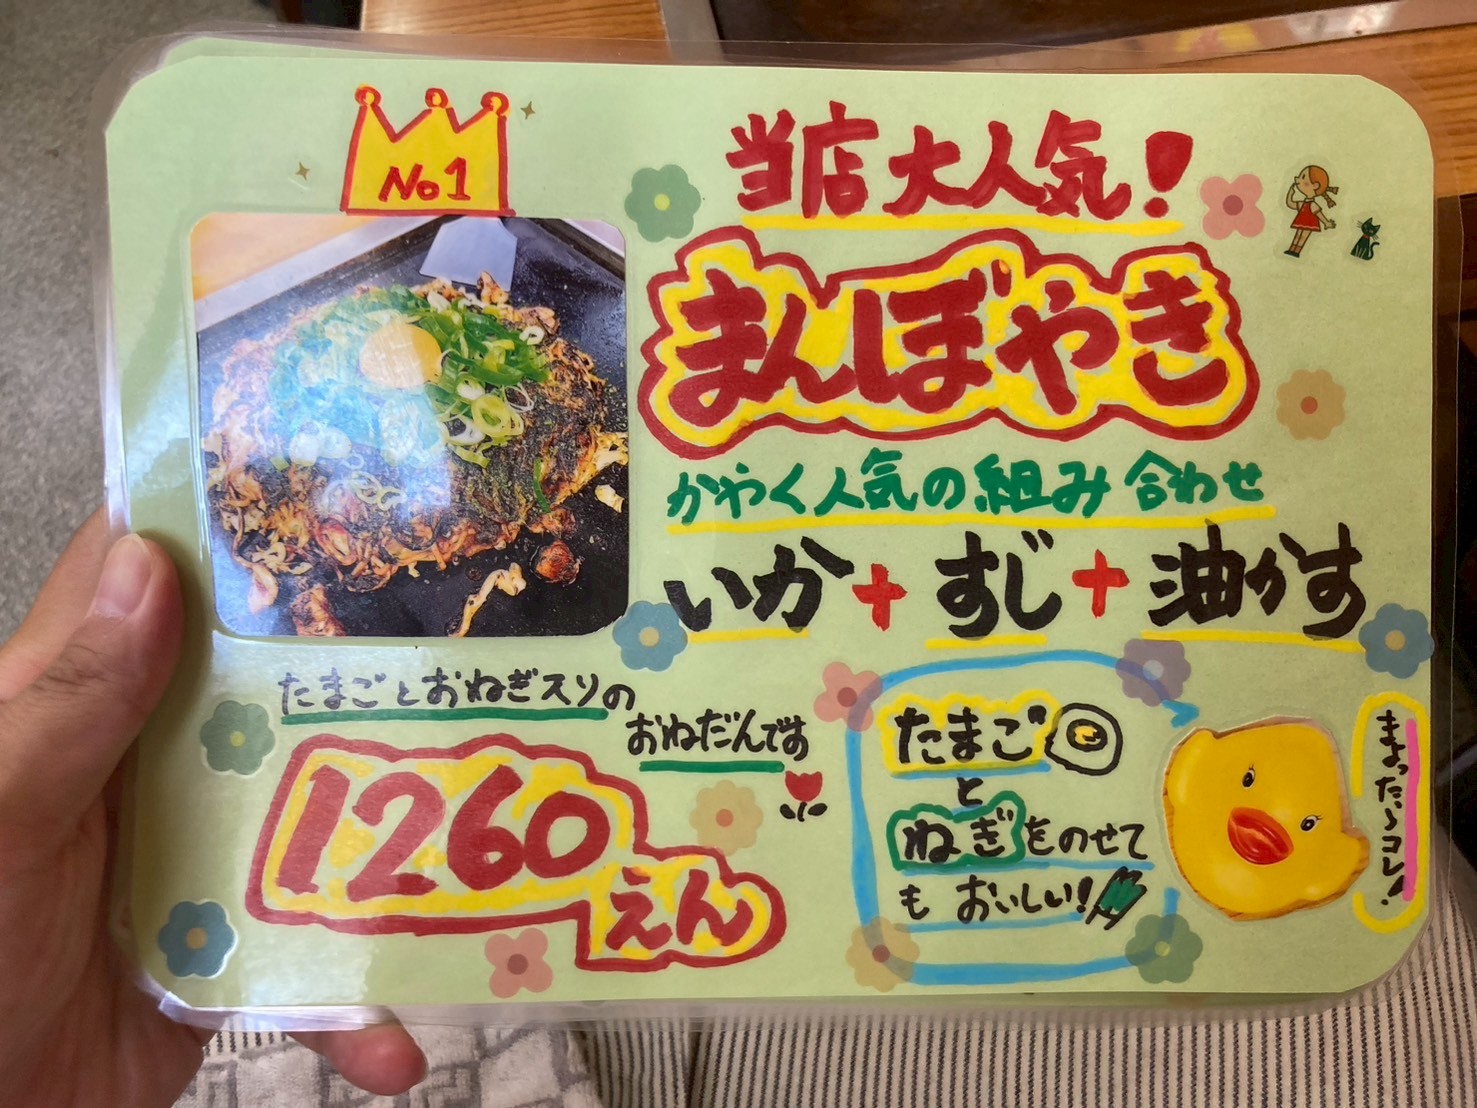 No1
当店大人気!
まんぼやき
かやく人気の組み合わせ
いか+すじ+油かす
たまごとおねぎ入りの
おねだんです
1260
えん
たまご
と
ねぎをのせて
もおいしい!
まよったらコレ!